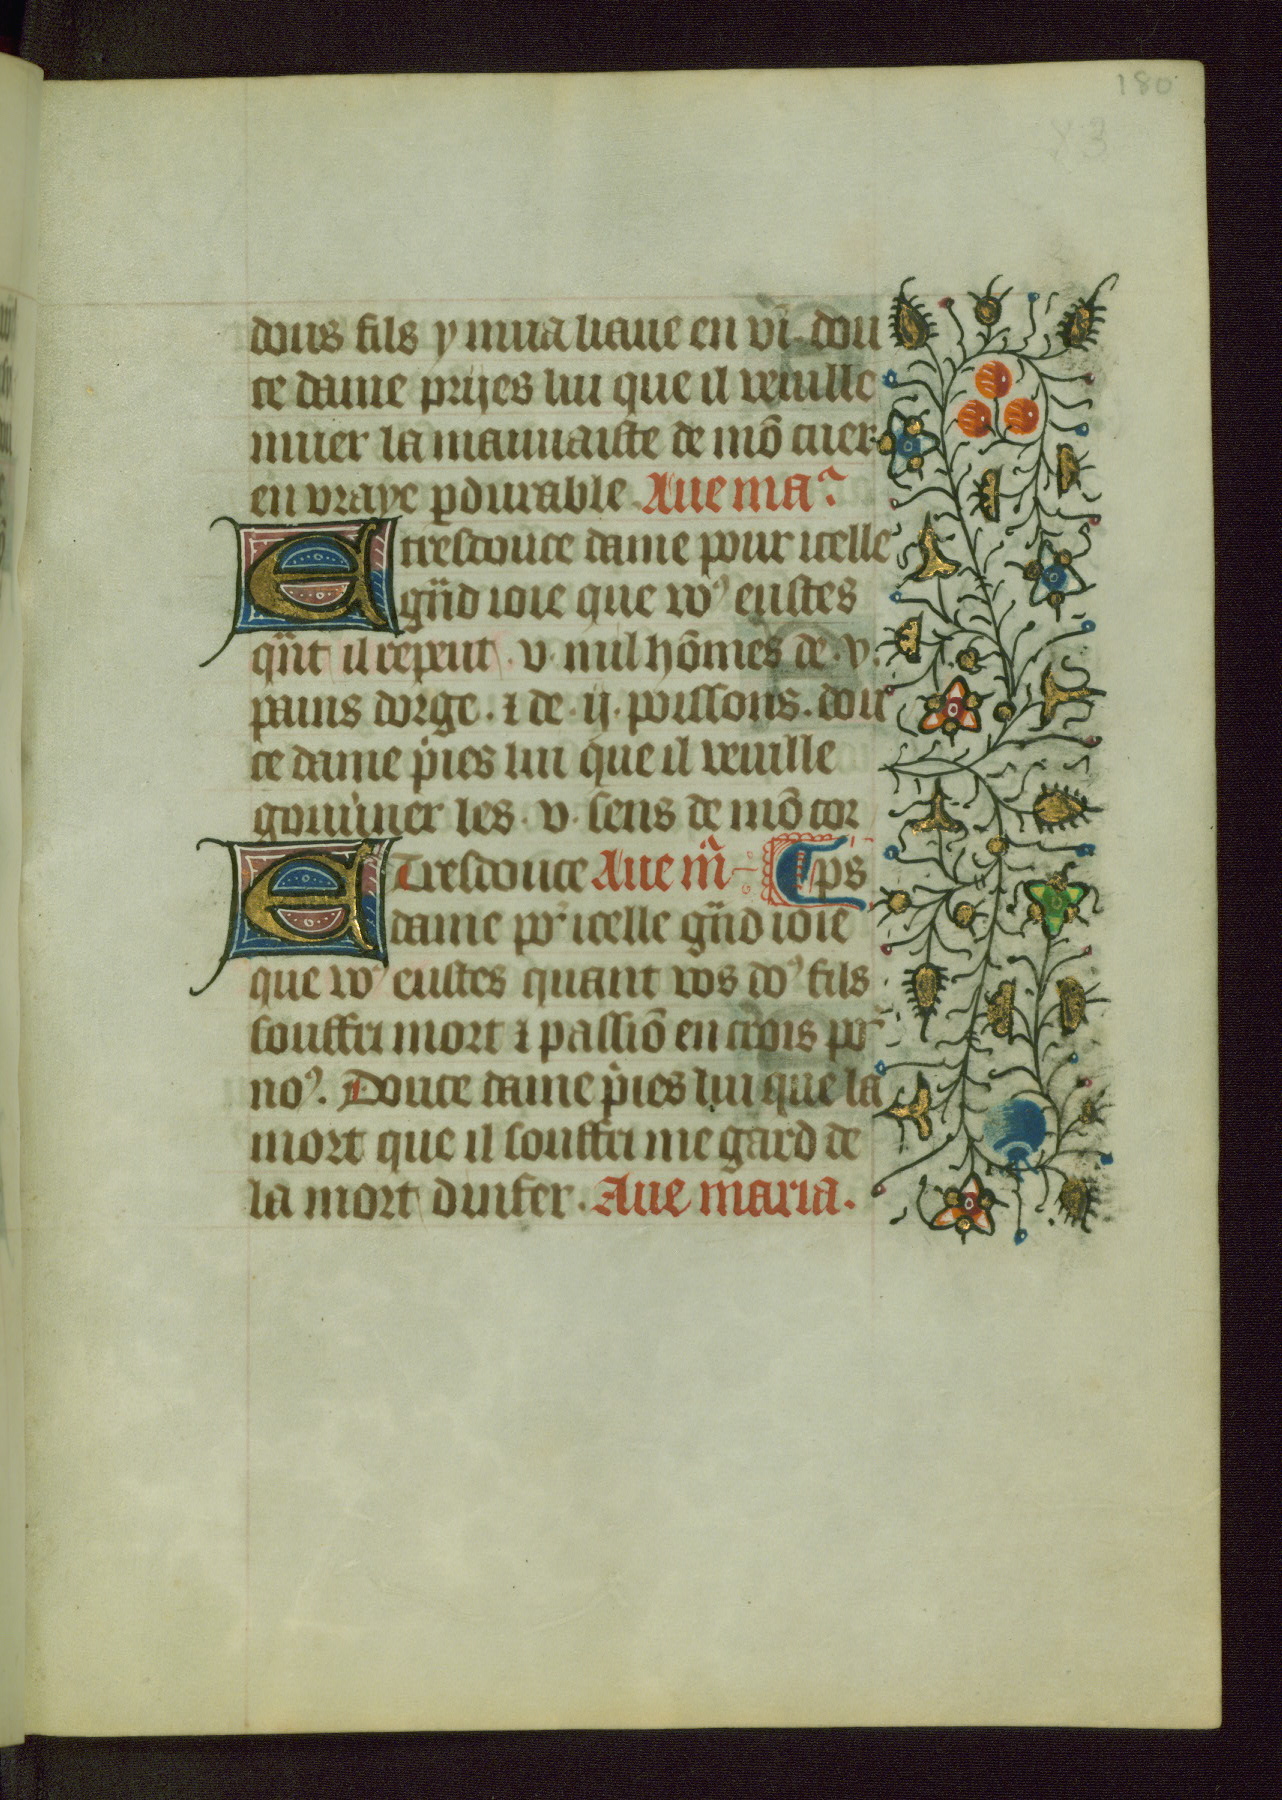 180
dous fils y mua liaue en vı̃. dou
ce dame prijes lui que il veuille
muer la mauuaiste de mõ cuer
en vraye pdurable. Aue ma
E tresdouce dame pour icelle
gñd ioie que voꝰ eustes
qñt il reput .v. mil hõmes de .v.
pains dorge. ⁊ de .ij. poissons. dou
ce dame pͥies lui que il veuille
gouu̾ner les .v. sens de mõ cor
E Tresdouce Aue m̃ ps
dame poͬ icelle gñd ioie
que voꝰ eustes quant vos doꝰ fils
souffri mort ⁊ passiõ en crois poͬ
noꝰ. Douce dame pͥies lui que la
mort que il souffri me gard de
la mort dinfer. Aue maria.